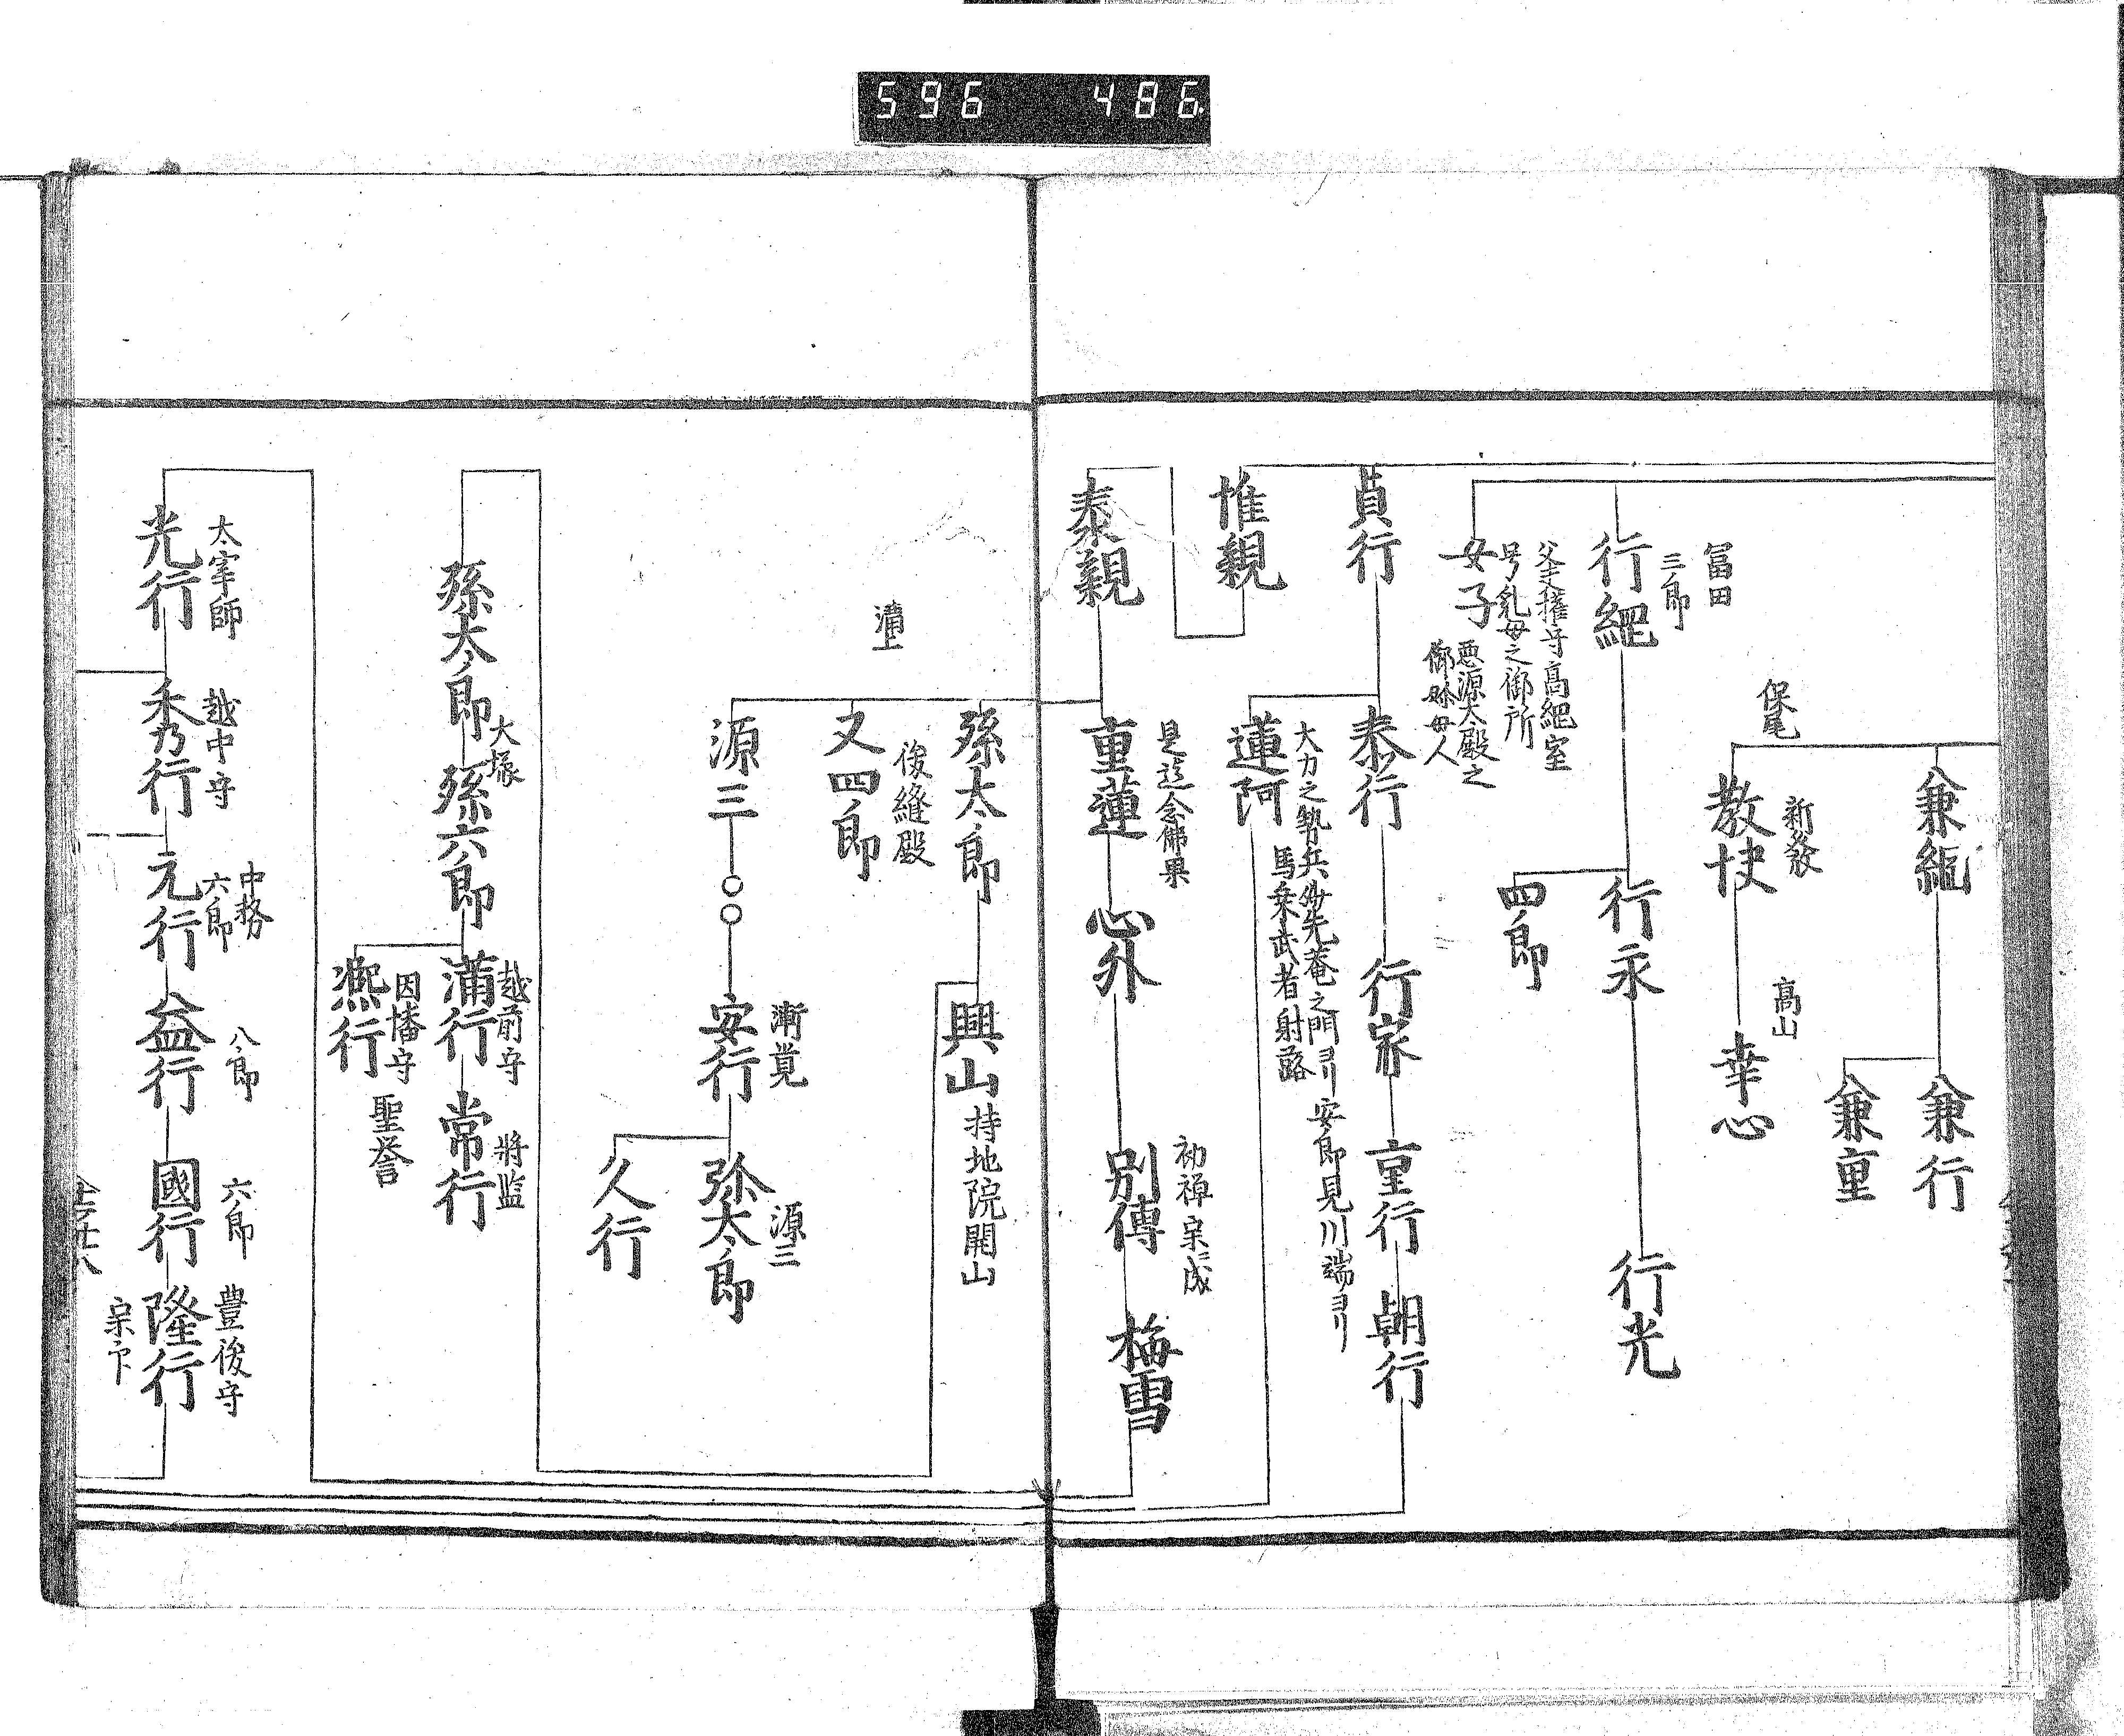 596 486
兼綱
兼行
兼重
保尾
新發
教快
高山
幸心
冨田
三郎
行縄
行永
行光
四郎
女子
父天權守高縄室
号乳母之御所
悪源太殿之
御妳母人
貞行
泰行
行家
重行
朝行
蓮阿
大力之勢兵
先菴之門ヨリ安郎見川端ヨリ
馬乗武者射路
惟親
泰親
重蓮
是迄念佛果
心外
別傳
初禅宗成
梅雪
孫太郎
興山
持地院開山
蒲上
後縫殿
又四郎
源三
○○
漸覚
安行
源三
弥太郎
久行
孫太郎
大塚
孫六郎
越前守
蒲行
將监
常行
因幡守
凞行
聖誉
太宰師
光行
越中守
秀行
中務
六郎
元行
八郎
益行
六郎
國行
豊後守
隆行